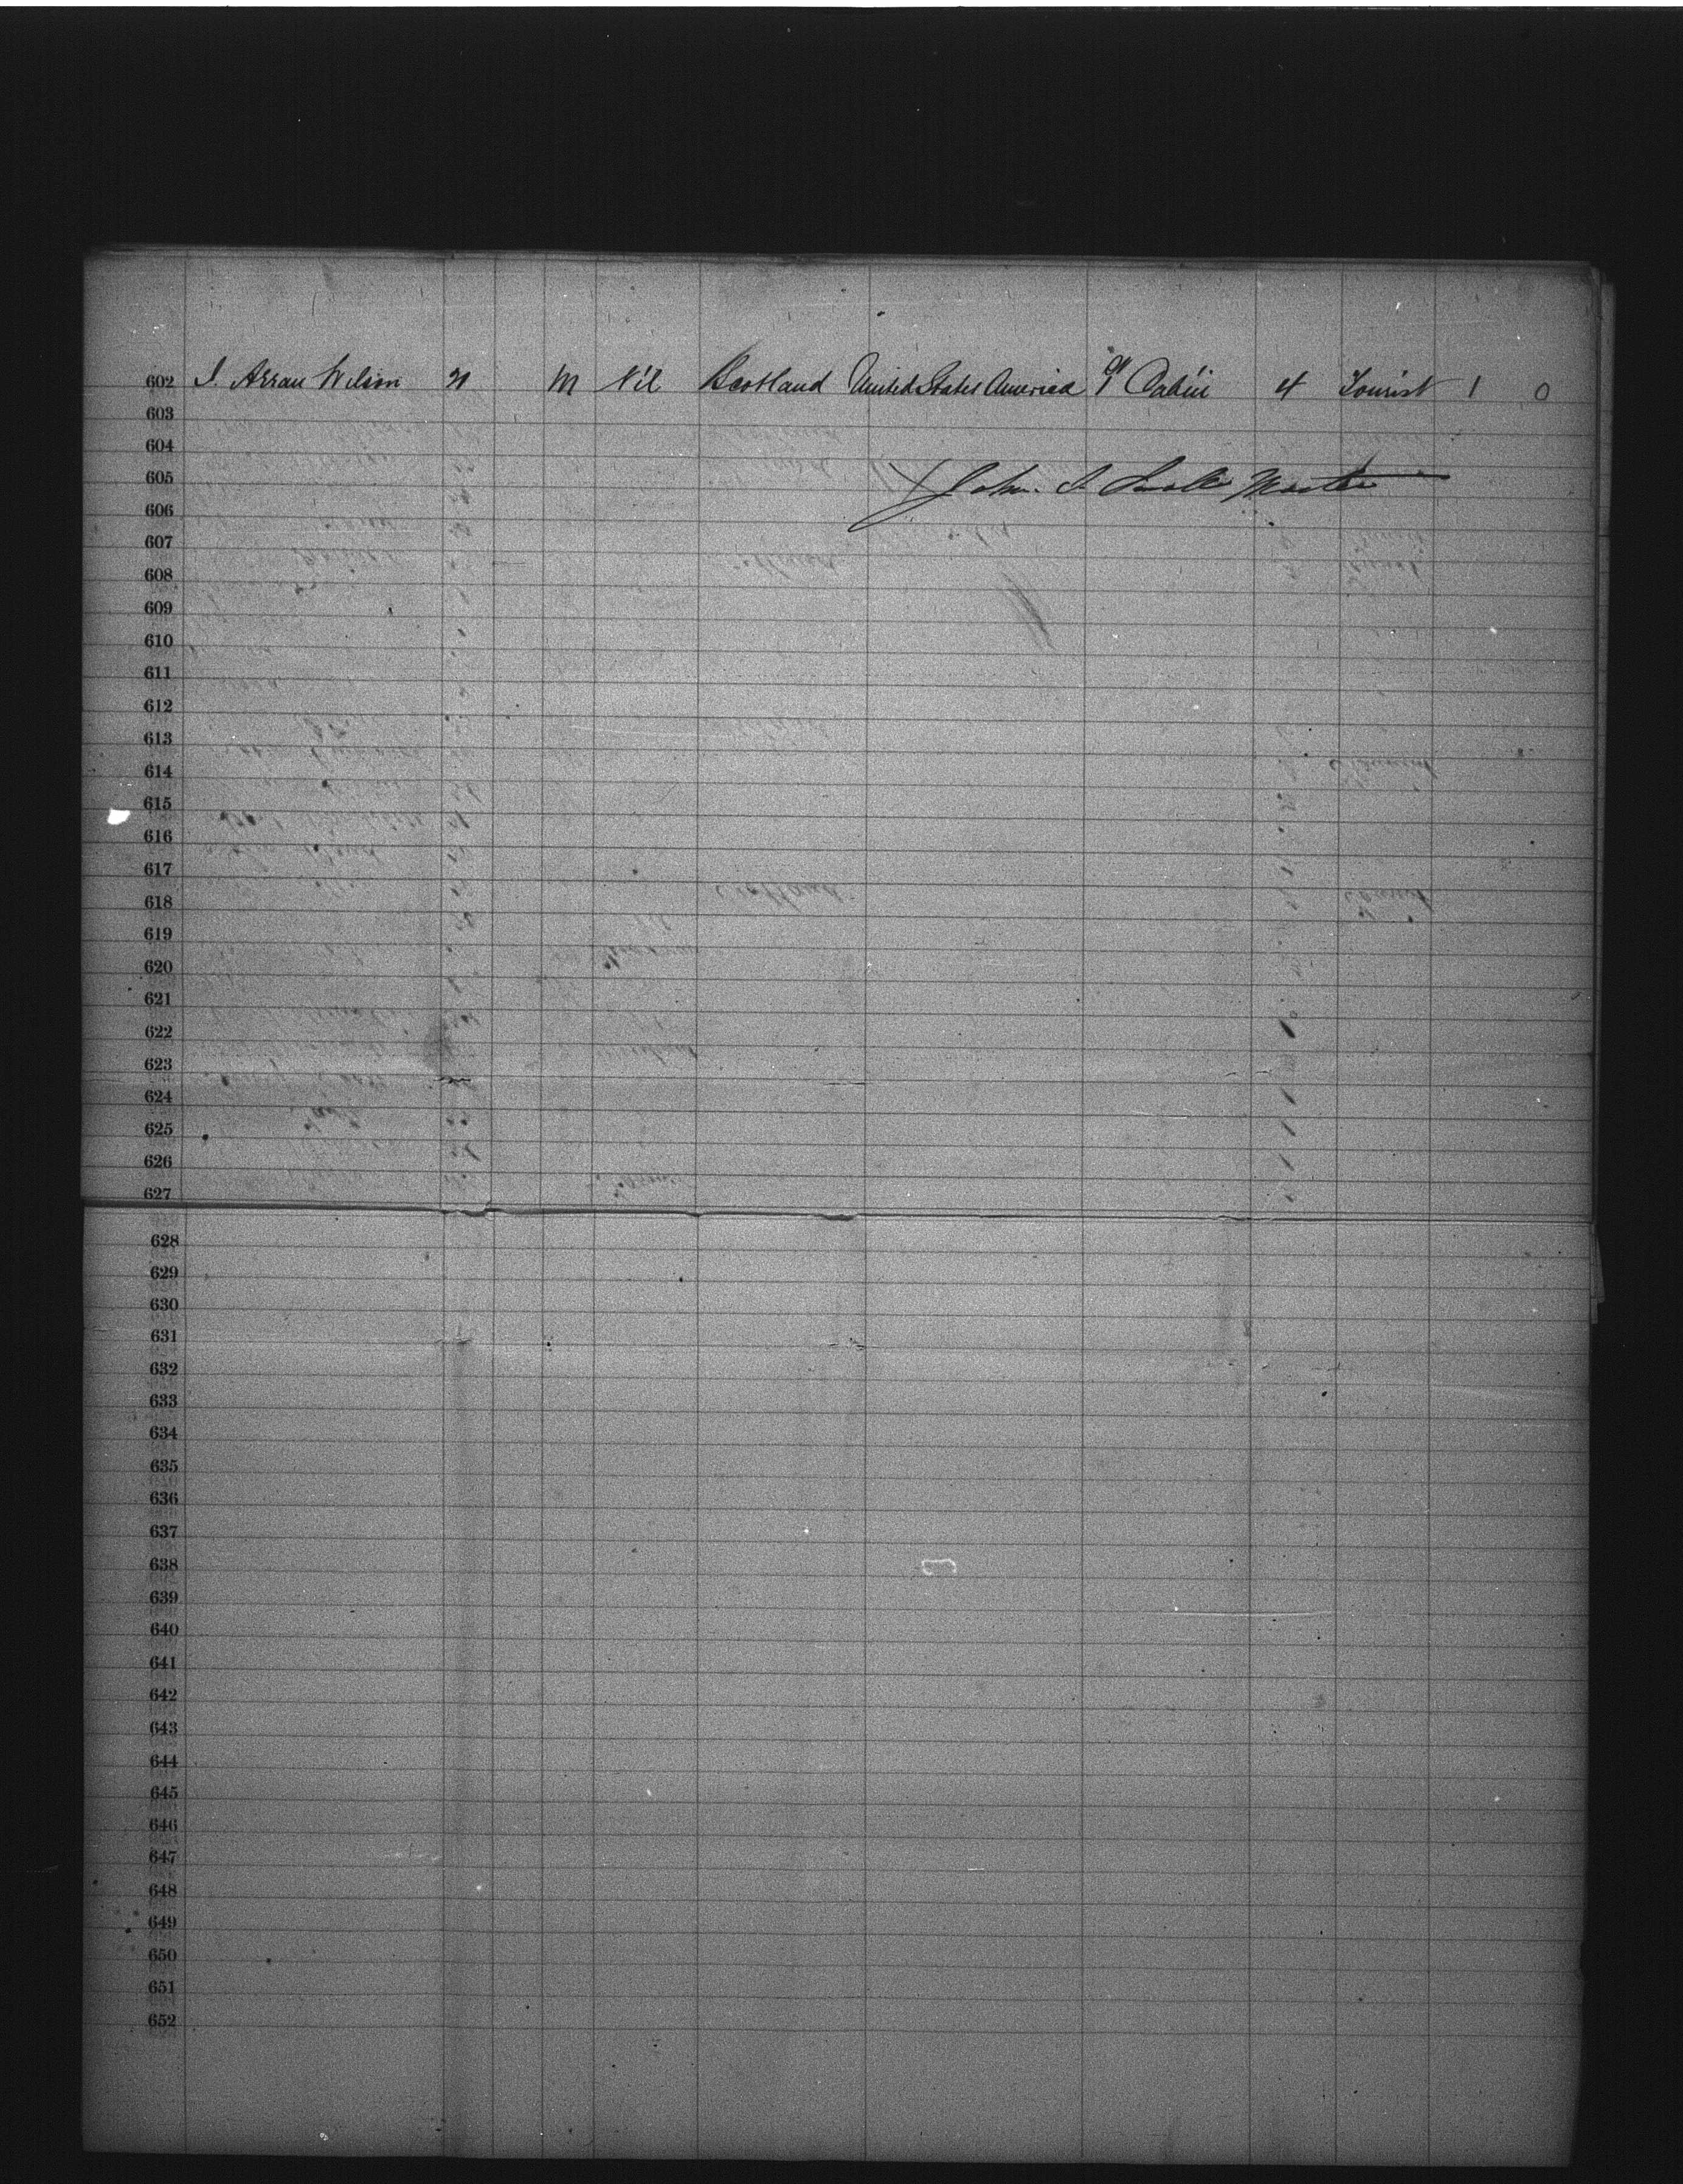 602 J. Arran Wilson 21 M Nil Scotland United States America 1st Cabin 4 Tourist 1 0
603
604
605 John. S. Master
606
607
608
609
610
611
612
613
614
615
616
617
618
619
620
621
622
623
624
625
626
627
628
629
630
631
632
633
634
635
636
637
638
639
640
641
642
643
644
645
646
647
648
649
650
651
652